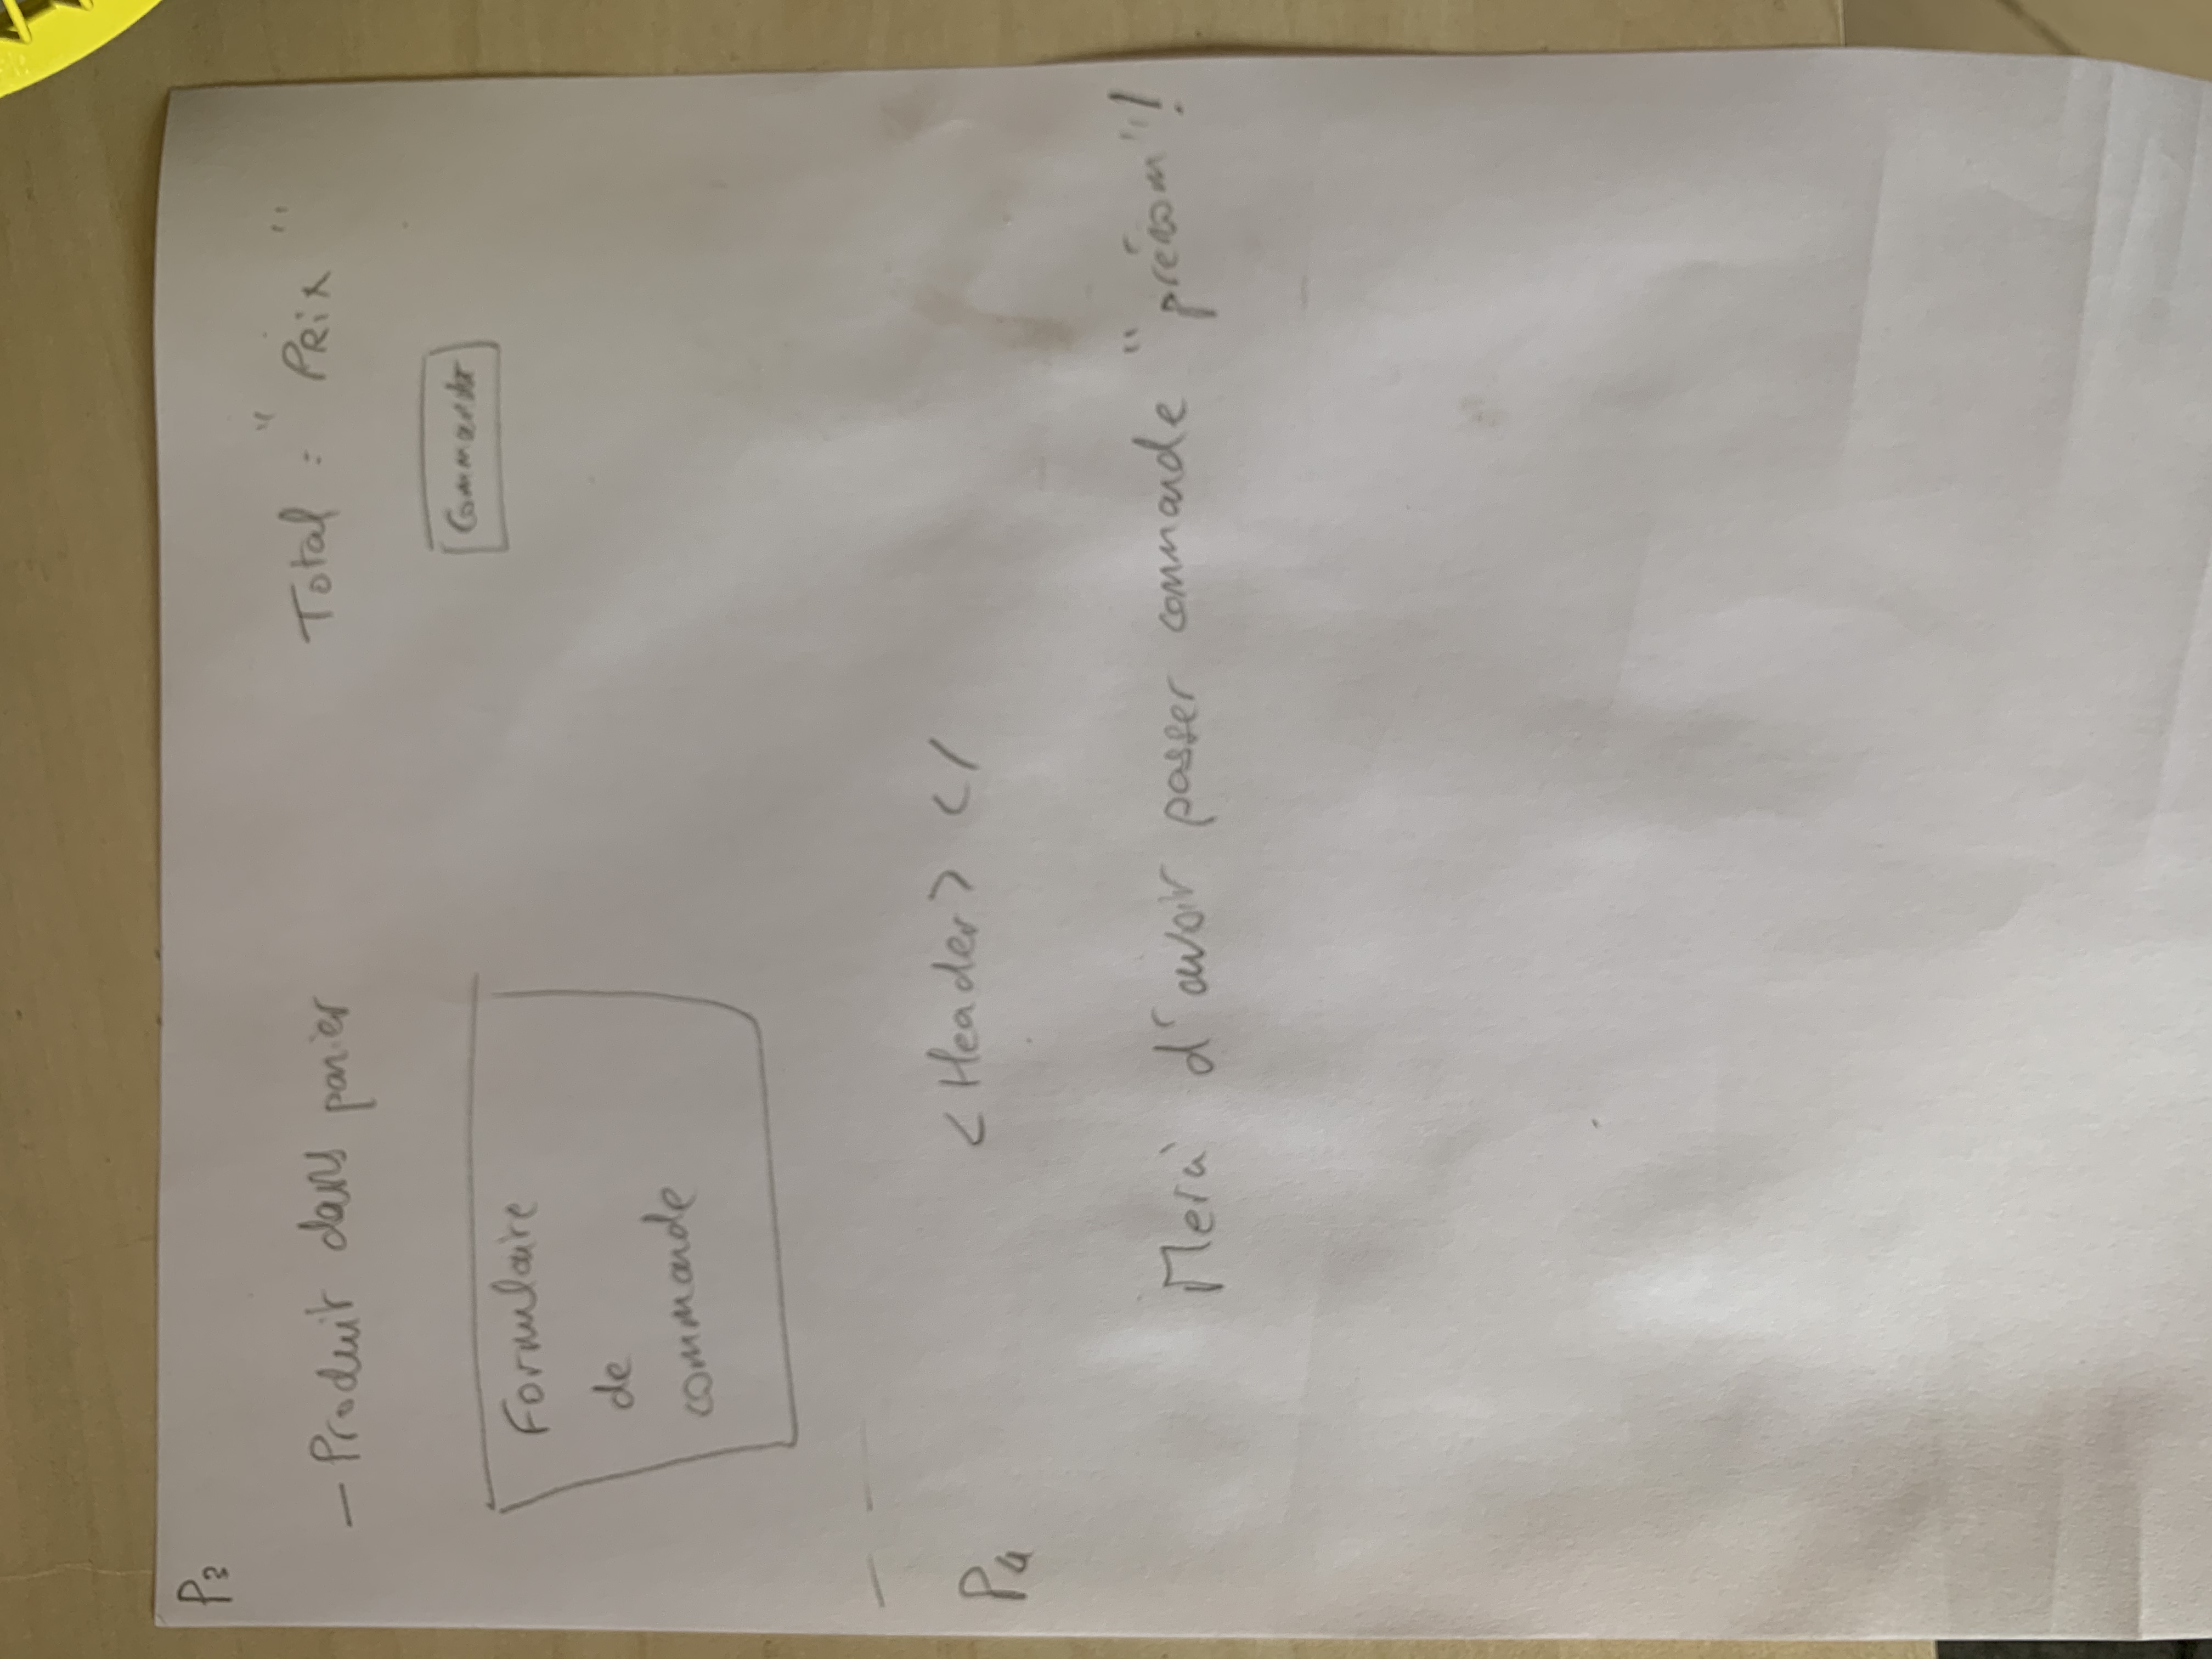 P3
- Produit dans panier
Total : "Prix"
Commander
Formulaire
de
commande
P4
<Header> </
Merci d'avoir passer commande "prénom"!